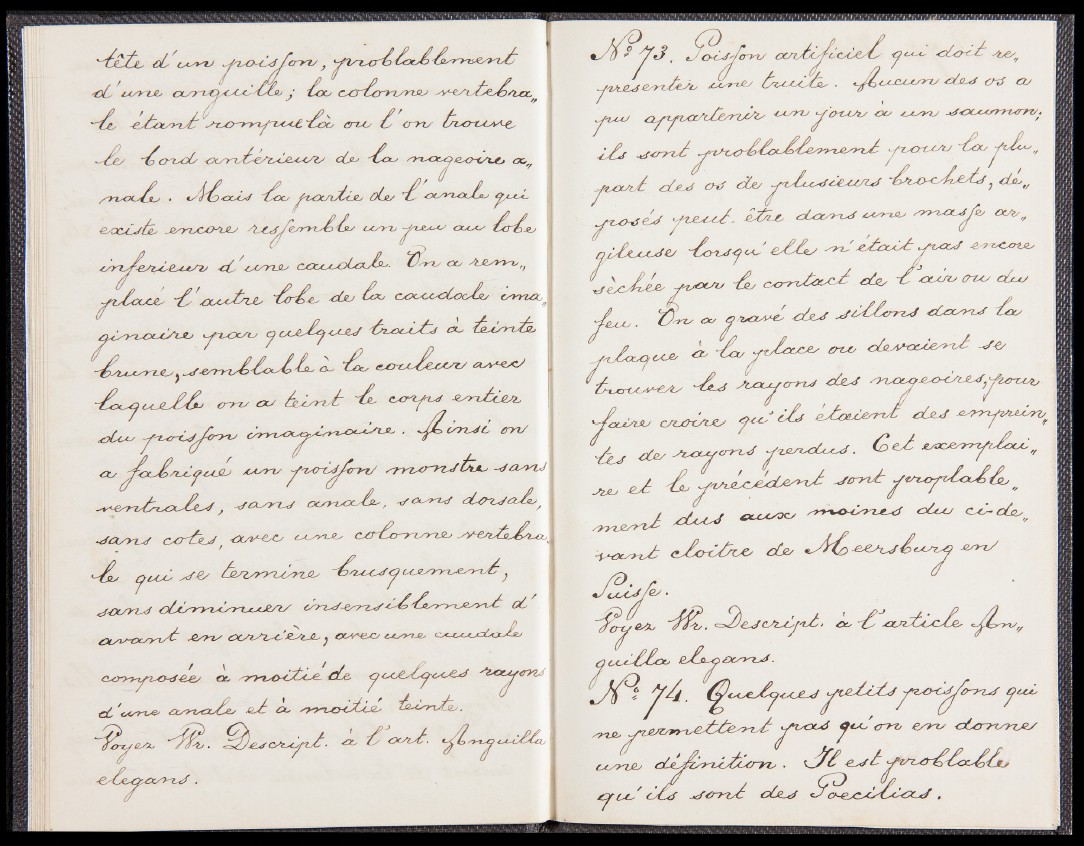 tête d'un poisſon, problablement
d'une anguille; la colonne vertebra„
le étant rompue là ou l'on trouve
le bord antérieur de la nageoire a„
nale. Mais la partie de l'anale qui
existe encore resſemble un peu au lobe
inferieur d'une caudale. On a rem„
placé l'autre lobe de la caudale ima„
ginaire par quelques traits à teinte
brune, semblable à la couleur avec
laquelle on a teint le corps entier
du poisſon imaginaire. Ainsi on
a fabriqué un poisſon monstre sans
ventrales, sans anale, sans dorsale,
sans cotes, avec une colonne vertebra„
le qui se termine brusquement,
sans diminuer insensiblement d'
avant en arrière, avec une caudale
composée à moitié de quelques rayons
d'une anale et à moitié teinte.
Voyez Wr. Descript. à l'art. Anguilla
elegans.
Nº 73. Poisſon artificiel qui doit re„
présenter une truite. Aucun des os a
pu appartenir un jour à un saumon;
ils sont problablement pour la plu„
part des os de plusieurs brochets, dé„
posés peut-être dans une masſe ar„
gileuse lorsqu'elle n'était pas encore
sèchée par le contact de l'air ou du
feu. On a gravé des sillons dans la
plaque à la place ou devaient se
trouver les rayons des nageoires, pour
faire croire qu'ils étaient des emprein„
tes de rayons perdus. Cet exemplai„
re et le précédent sont proplable„
ment dus aux moines du ci-de„
vant cloitre de Meersburg en
Suisſe.
Voyez Wr. Descript. à l'article An„
guilla elegans.
Nº 74. Quelques petits poisſons qui
ne permettent pas qu'on en donne
une définition. Il est problable
qu'ils sont des Poecilias.